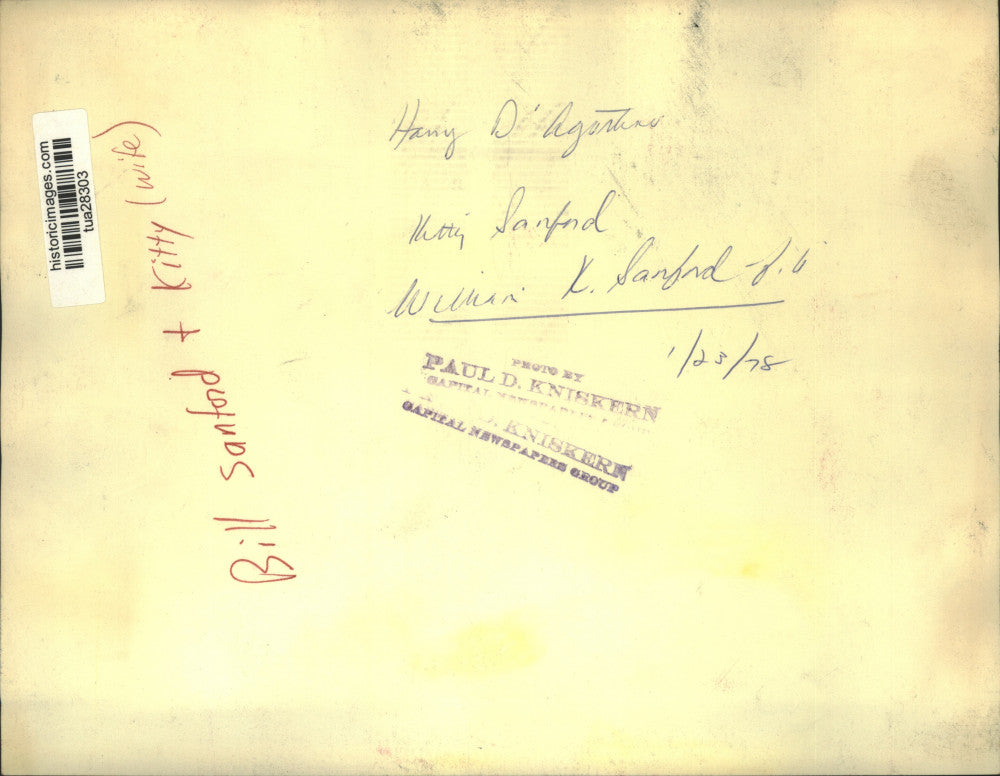 historicimages.com
tua28303
Bill Sanford + Kitty (wife)
Harry D'Agostino
Kitty Sanford
William K. Sanford
1/23/78
PHOTO BY
PAUL D. KNISKERN
CAPITAL NEWSPAPERS
D. KNISKERN
CAPITAL NEWSPAPERS GROUP